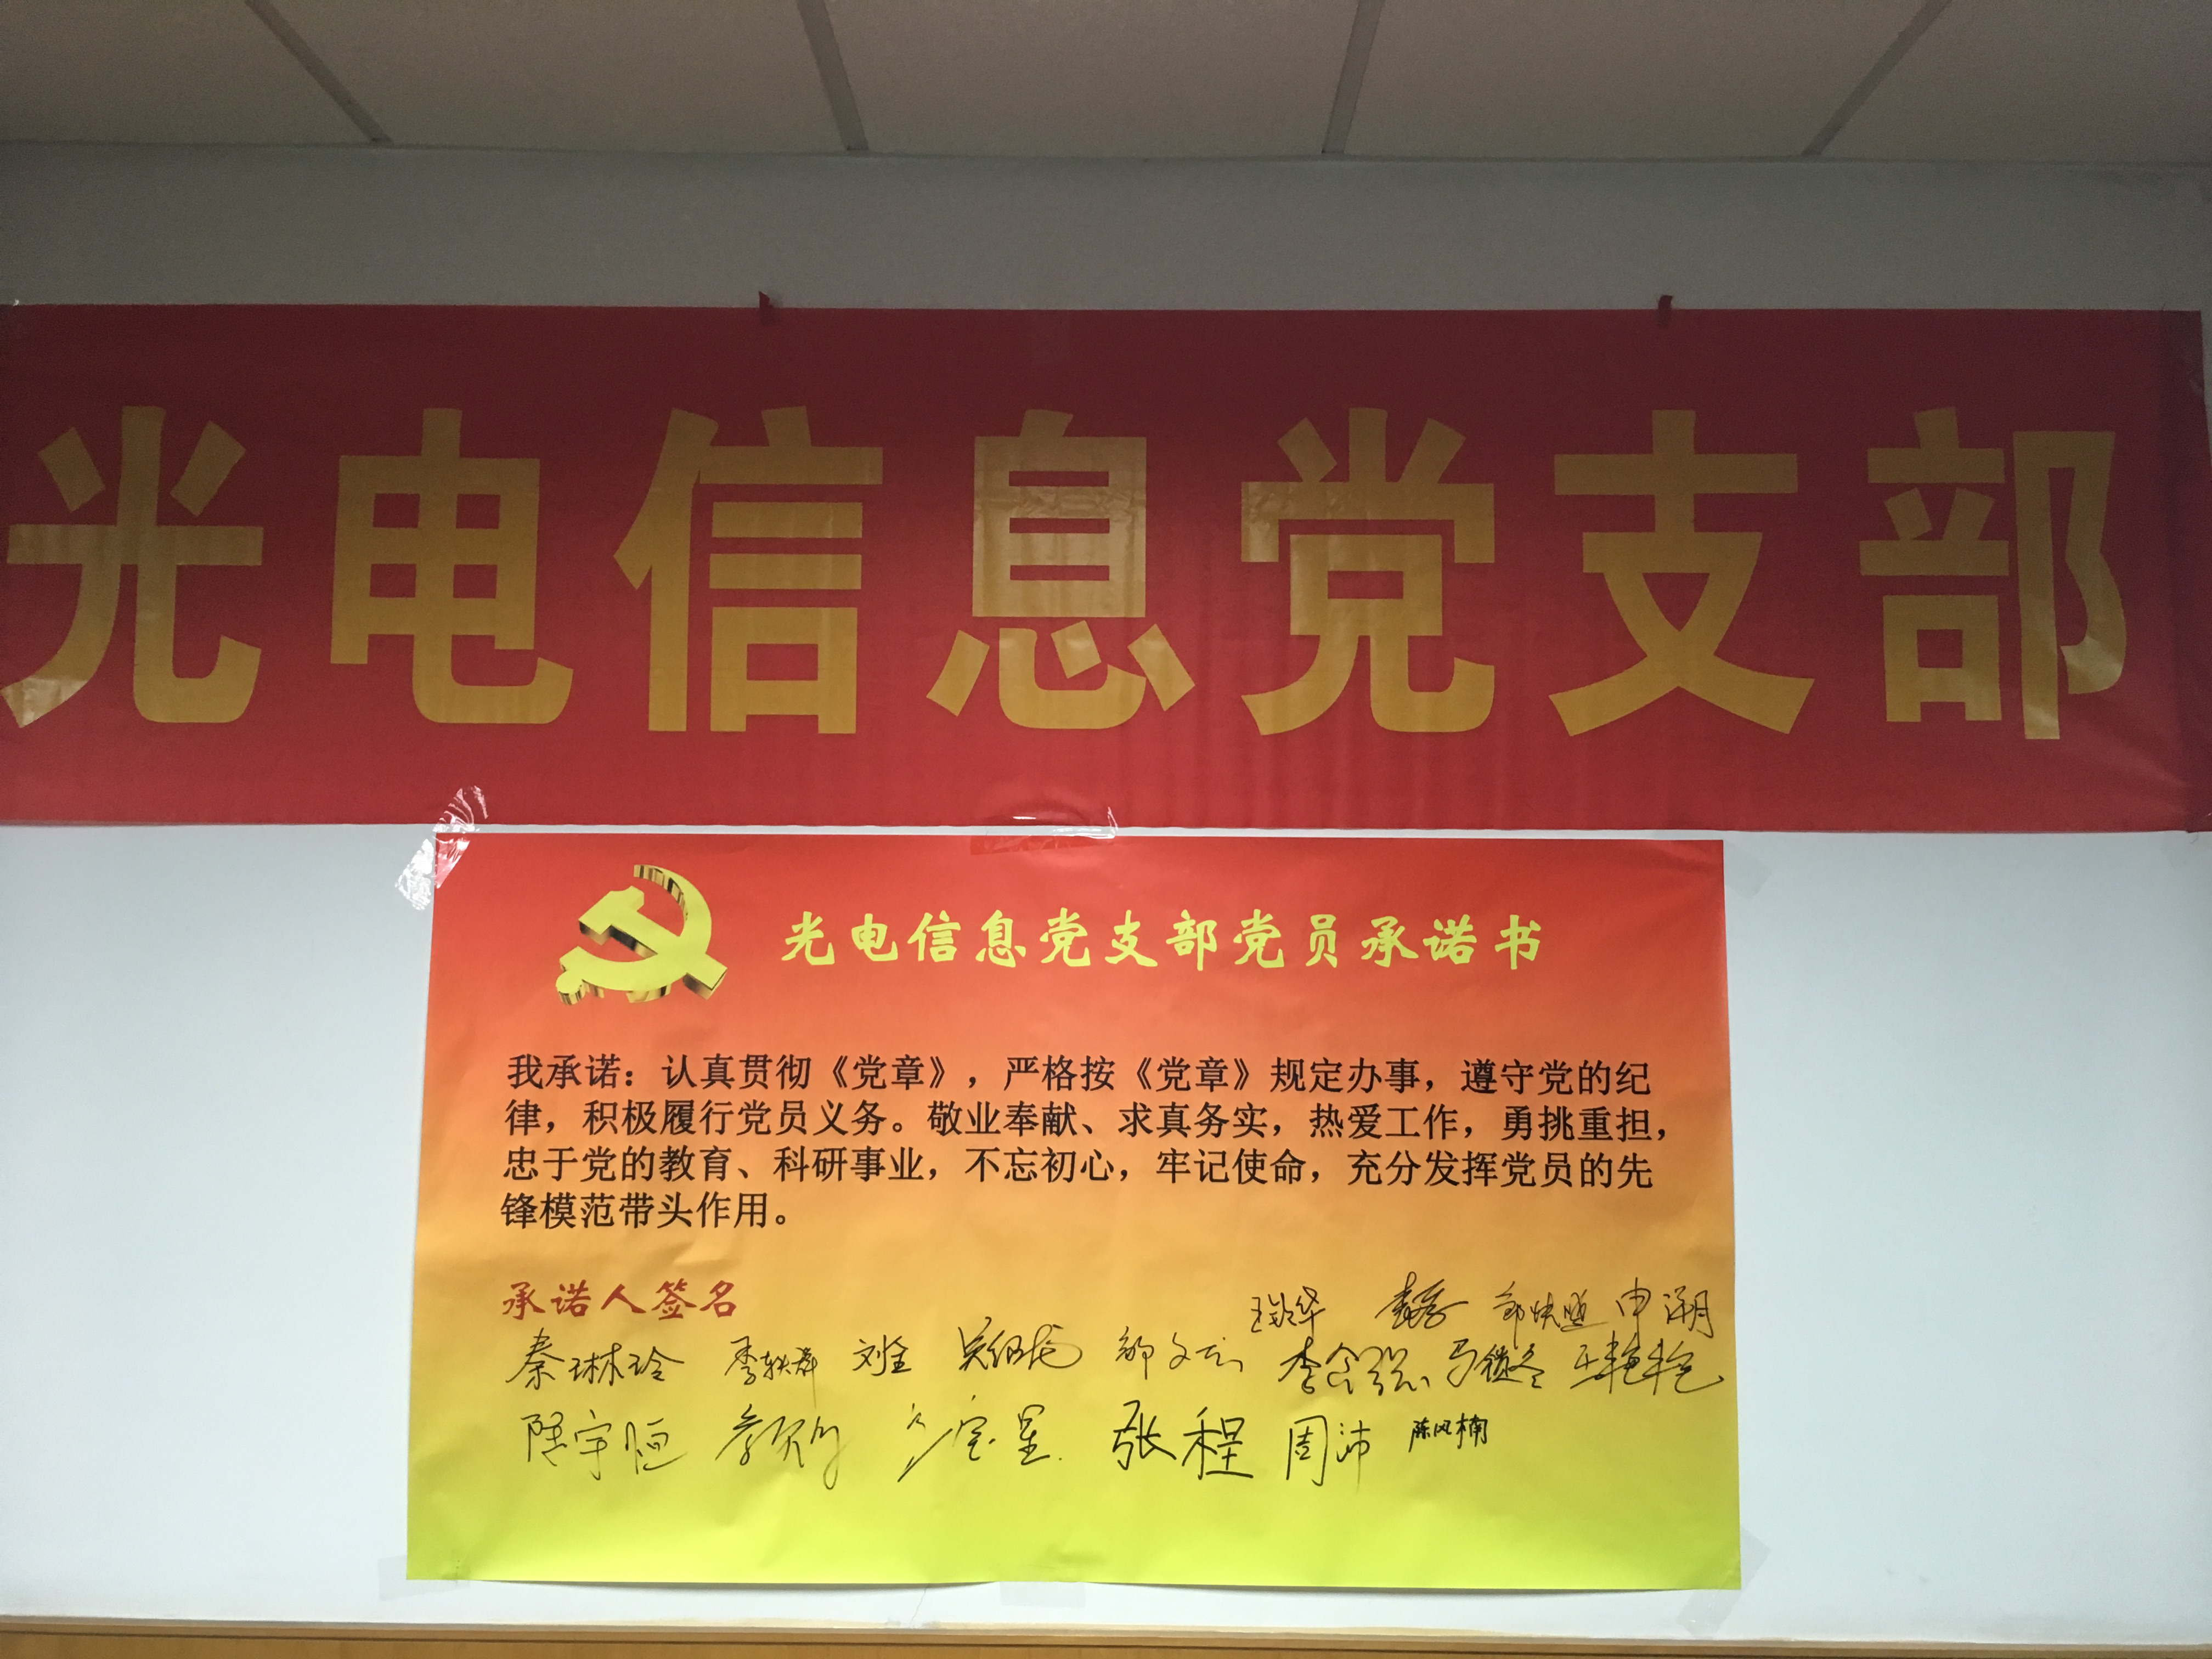 光电信息党支部
光电信息党支部党员承诺书
我承诺：认真贯彻《党章》，严格按《党章》规定办事，遵守党的纪
律，积极履行党员义务。敬业奉献、求真务实，热爱工作，勇挑重担，
忠于党的教育、科研事业，不忘初心，牢记使命，充分发挥党员的先
锋模范带头作用。
承诺人签名
申溯
秦琳玲 刘全
张程 周沛 陈风楠